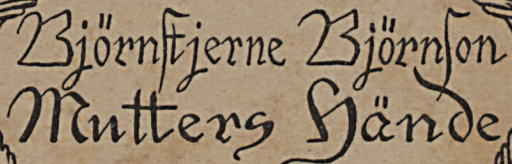 Björnſtjerne Björnſon
Mutters Hände